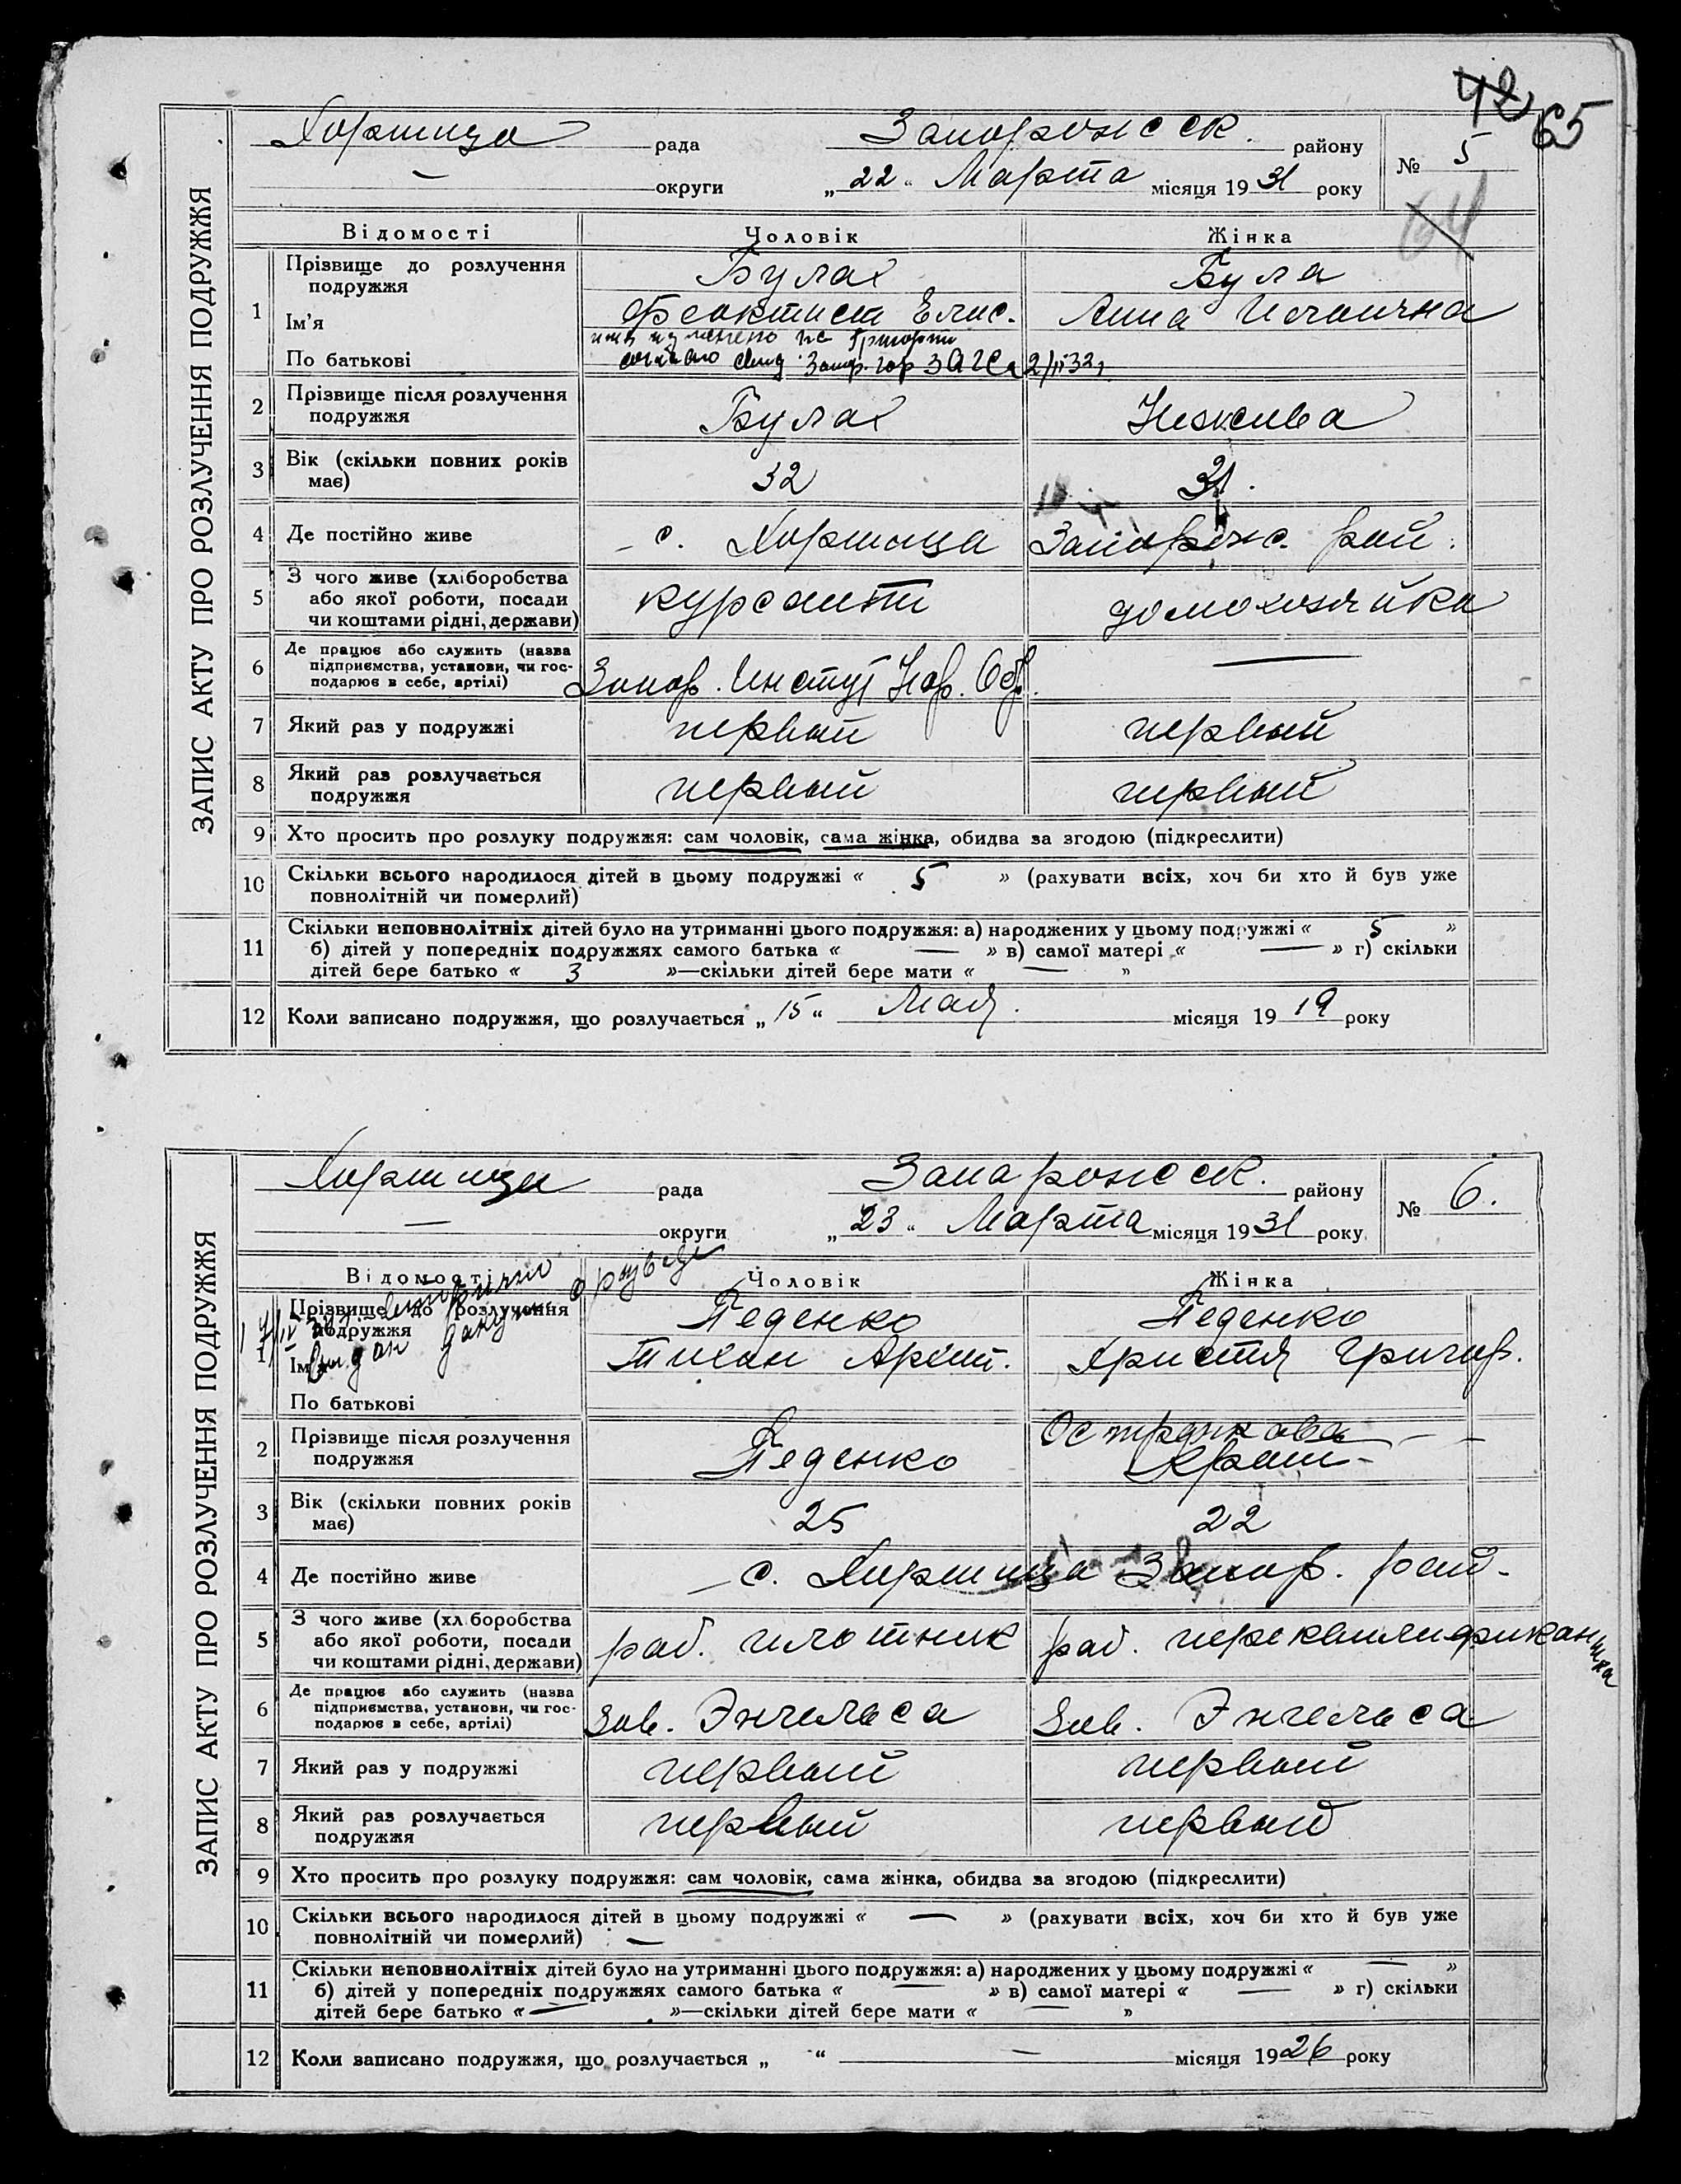 42 65
ЗАПИС АКТУ ПРО РОЗЛУЧЕННЯ ПОДРУЖЖЯ
Хортица рада Запорожск. району № 5
— округи „ 22 “ Марта місяця 19 31 року
64
Відомості Чоловік Жінка
1 Прізвище до розлучення подружжя Булах Була
Ім’я Феоктист Елис. Анна
По батькові имя изменено на Григорий
Запор. гор ЗАГСа 2/II 32
2 Прізвище після розлучення подружжя Булах
3 Вік (скільки повних років має) 32 31.
4 Де постійно живе с. Хортица Запорожс. рай.
5 З чого живе (хліборобства або якої роботи, посади чи коштами рідні, держави) курсант домохозяйка
6 Де працює або служить (назва підприємства, установи, чи господарює в себе, артілі) Запор. Институт Нар. Обр. —
7 Який раз у подружжі первый первый
8 Який раз розлучається подружжя первый первый
9 Хто просить про розлуку подружжя: сам чоловік, сама жінка, обидва за згодою (підкреслити)
10 Скільки всього народилося дітей в цьому подружжі « 5 » (рахувати всіх, хоч би хто й був уже
повнолітній чи померлий)
11 Скільки неповнолітніх дітей було на утриманні цього подружжя: а) народжених у цьому подружжі « 5 »
б) дітей у попередніх подружжях самого батька « — » в) самої матері « — » г) скільки
дітей бере батько « 3 »—скільки дітей бере мати « — »
12 Коли записано подружжя, що розлучається „ 15 “ Мая. місяця 19 19 року
ЗАПИС АКТУ ПРО РОЗЛУЧЕННЯ ПОДРУЖЖЯ
Хортица рада Запарожск. району № 6.
— округи „ 23 “ Марта місяця 19 31 року
Відомості Чоловік Жінка
вторично выдан о разводе
1 Прізвище до розлучення подружжя Педенко Педенко
Ім’я Тихан Архип. Христя Григор.
По батькові
2 Прізвище після розлучення подружжя Педенко
3 Вік (скільки повних років має) 25 22
4 Де постійно живе с. Хортица Запор. рай.
5 З чого живе (хліборобства або якої роботи, посади чи коштами рідні, держави) раб. плотник раб.
6 Де працює або служить (назва підприємства, установи, чи господарює в себе, артілі) Зав. Энгельса Зав. Энгельса
7 Який раз у подружжі первый первый
8 Який раз розлучається подружжя первый первый
9 Хто просить про розлуку подружжя: сам чоловік, сама жінка, обидва за згодою (підкреслити)
10 Скільки всього народилося дітей в цьому подружжі « — » (рахувати всіх, хоч би хто й був уже
повнолітній чи померлий) —
11 Скільки неповнолітніх дітей було на утриманні цього подружжя: а) народжених у цьому подружжі « — »
б) дітей у попередніх подружжях самого батька « — » в) самої матері « — » г) скільки
дітей бере батько « — »—скільки дітей бере мати « — »
12 Коли записано подружжя, що розлучається „ “ — місяця 19 26 року